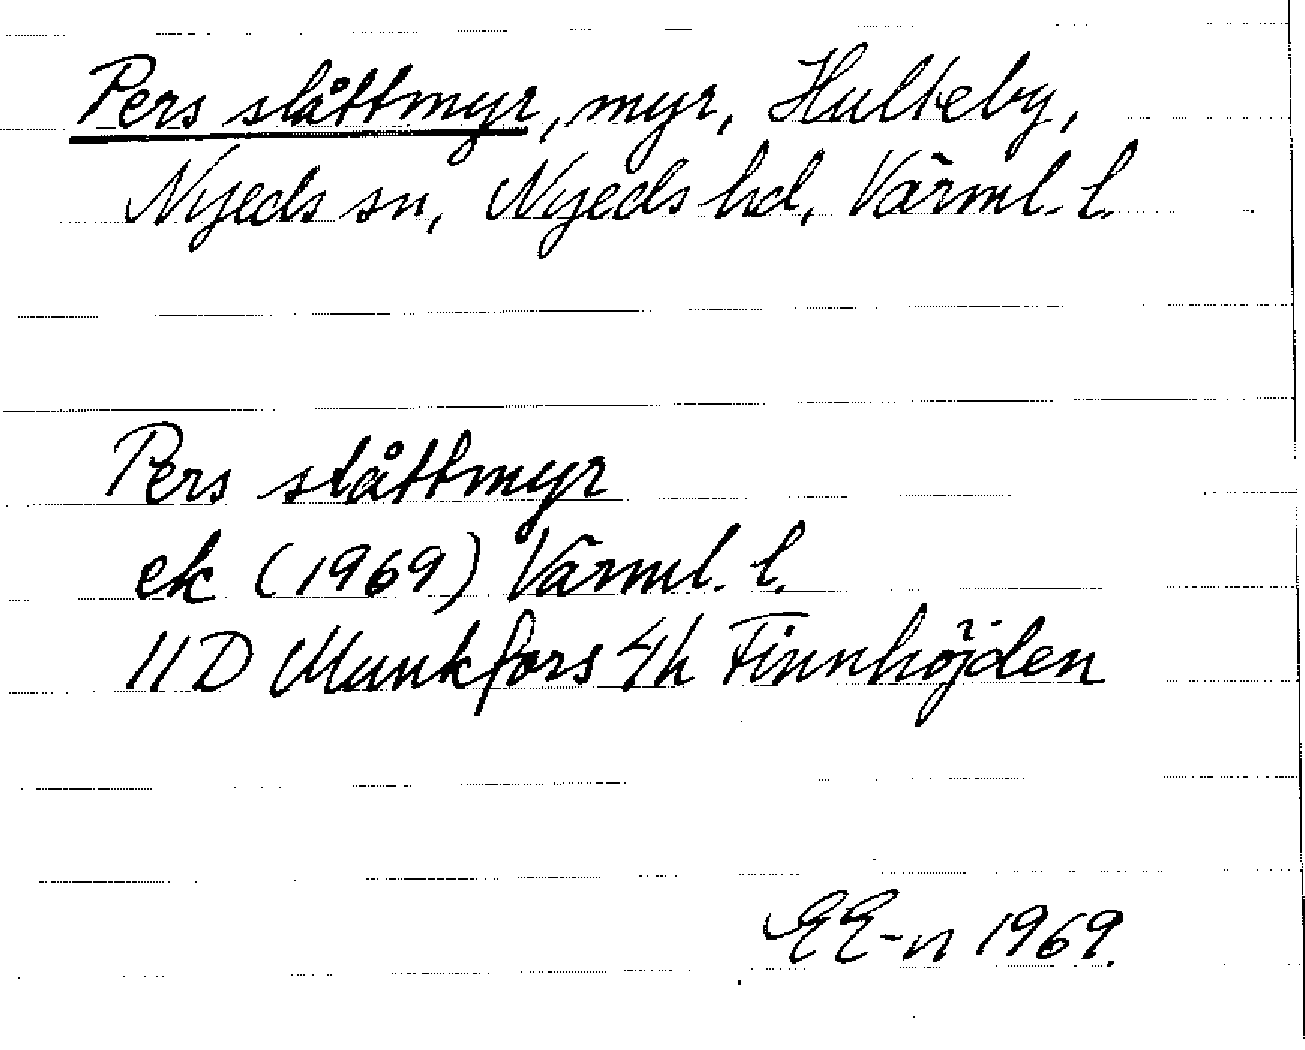 Pers slåttmyr, myr, Hulteby,
Nyeds sn, Nyeds hd, Värml. l.
Pers slåttmyr
ek (1969) Värml. l.
11D Munkfors 4h Finnhöjden
EE-n 1969.